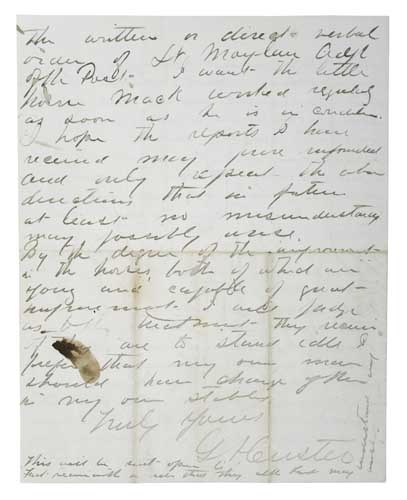 the written or direct verbal
order of Lt. Adjt
of the Post. I want the little
horse Mack worked regularly
as soon as he is in condition.
I hope the reports I have
received may prove unfounded
and only repeat the above
directions that in future
at least no misunderstanding
may possibly arise.
By the degree of the improvement
in the horses, both of which are
young and capable of great
improvement I will judge
as to the treatment they receive
are to stand idle I
prefer that my own man
should have charge of them
in my own stables
Truly Yours
G A Custer
This will be sent open
that they